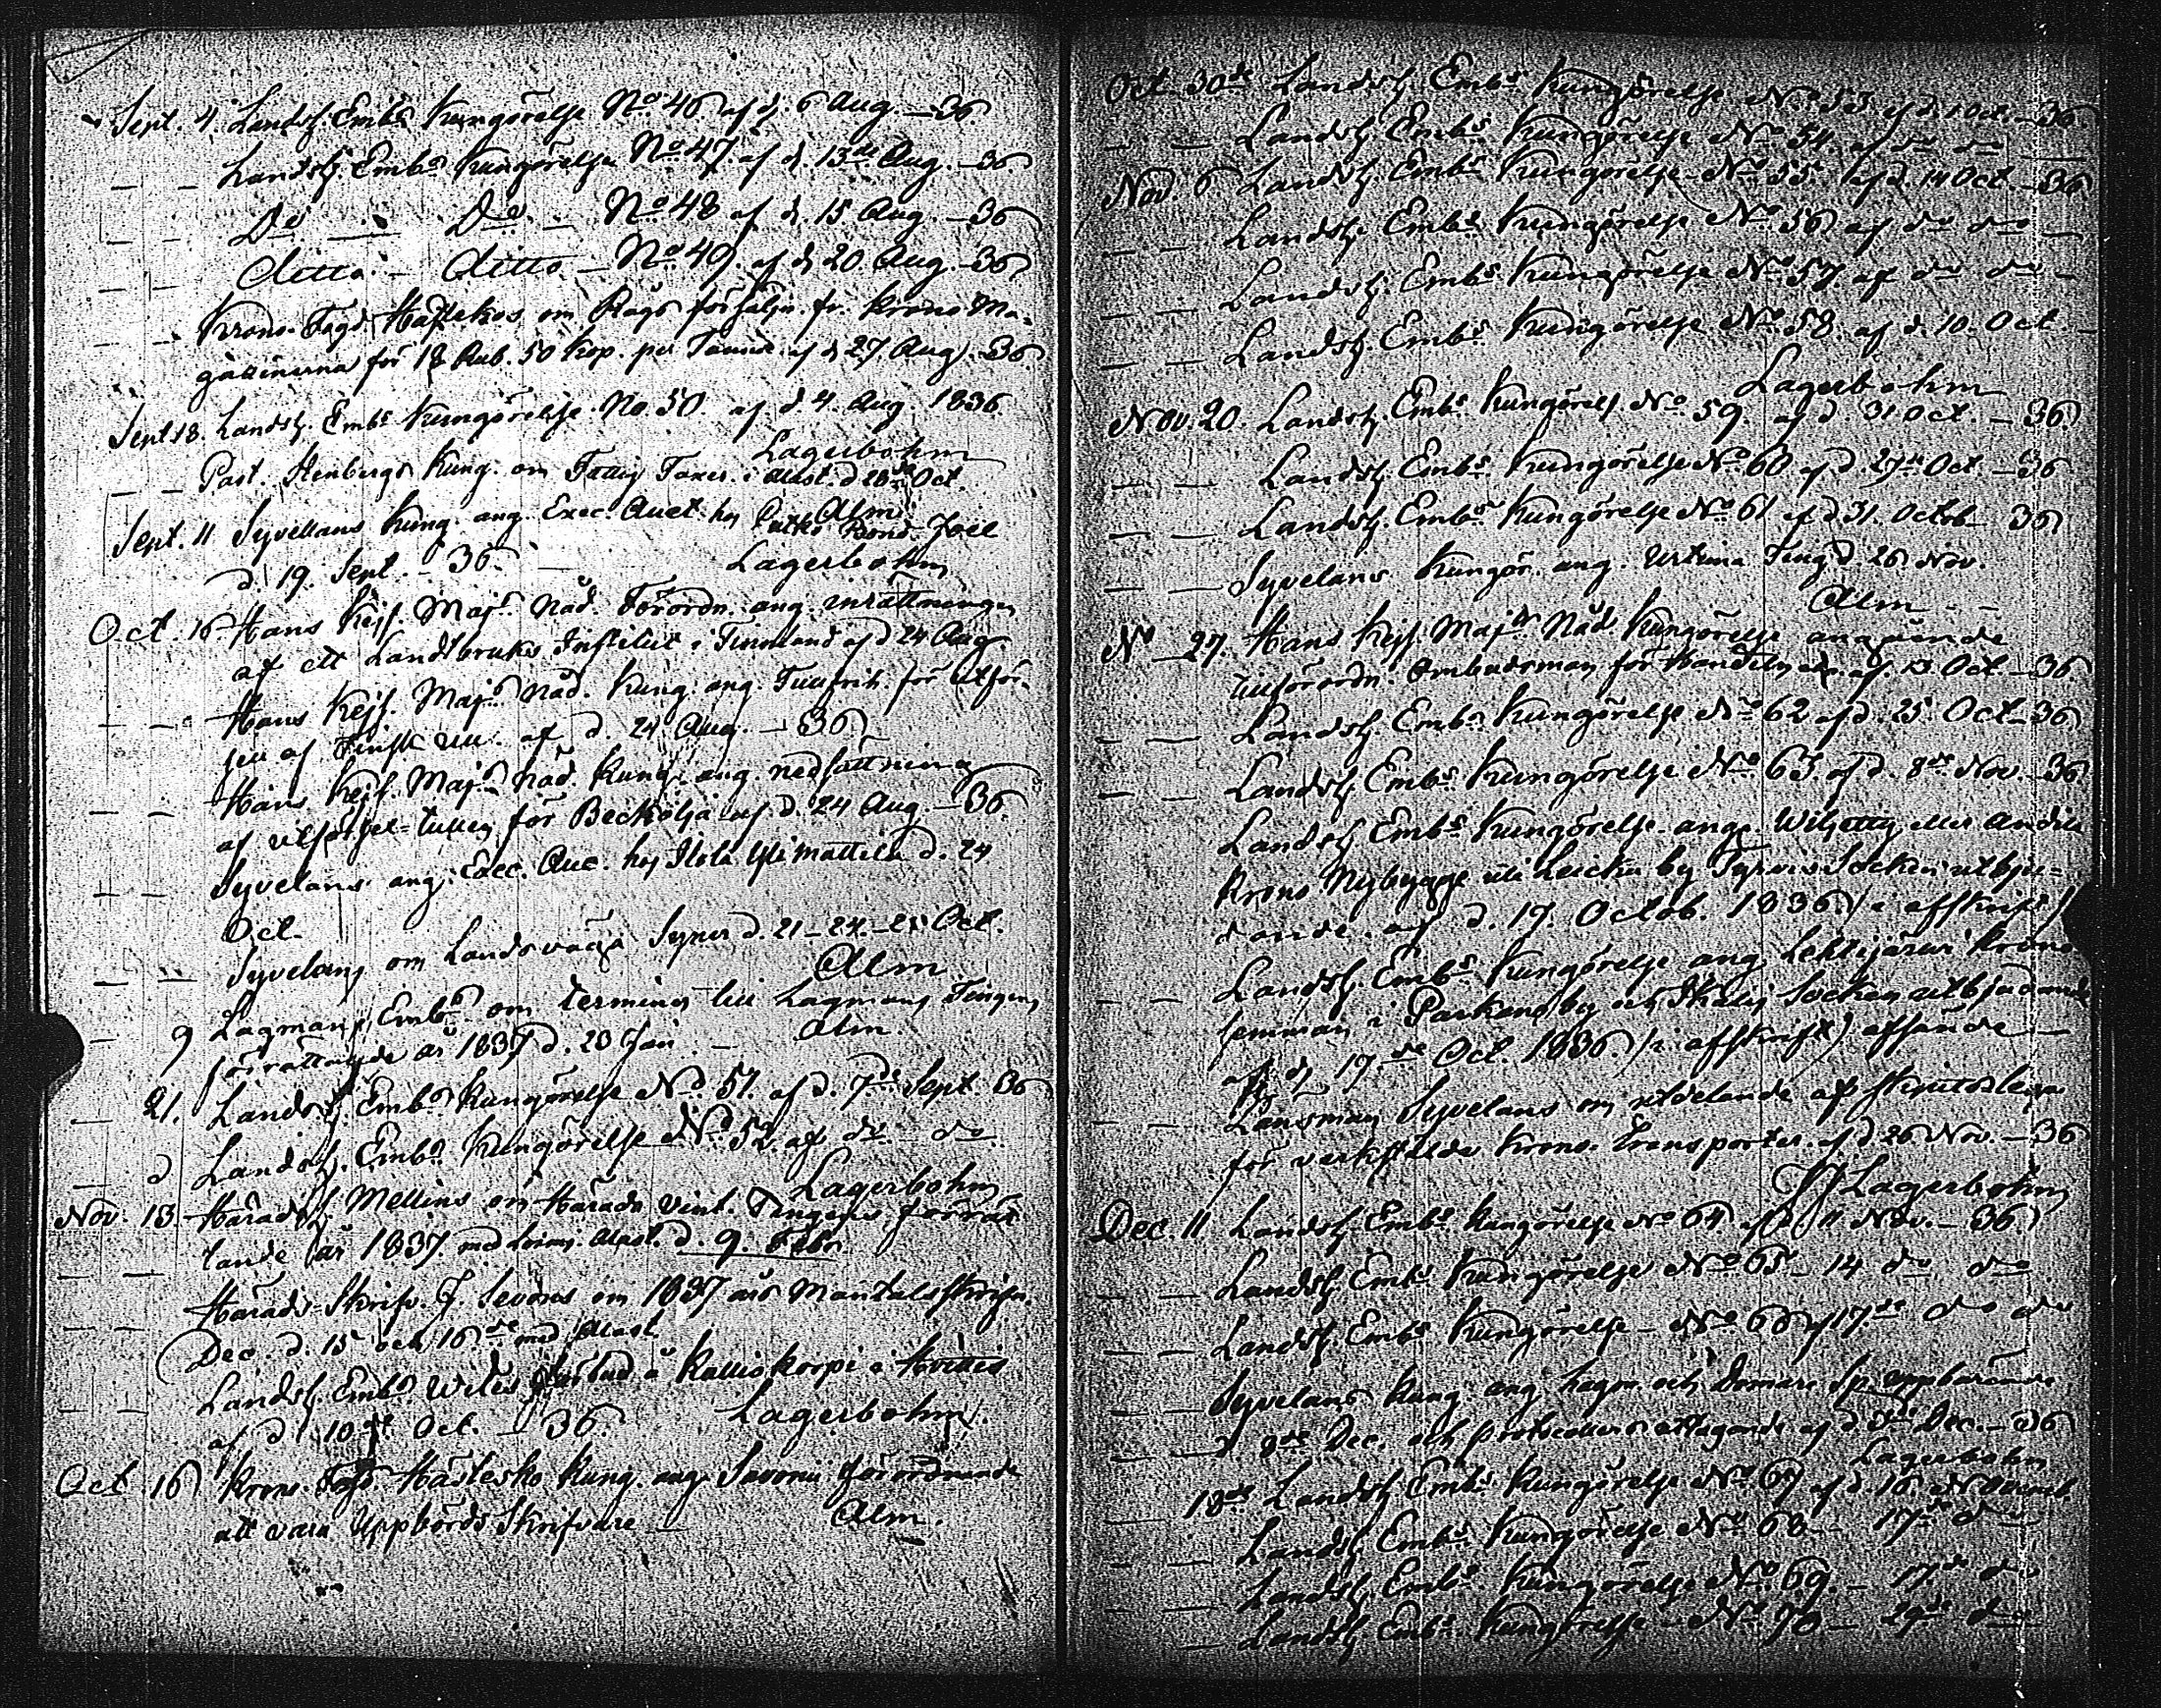 Sept. 4. Landsh. Embs Kungörelse No 46 af d. 6 Aug. – 36
– – Landsh. Embs Kungörelse No 47 af d. 13de Aug. – 36
– – Do – Do – No 48 af d. 15 Aug. – 36
– – ditto – ditto – No 49 af d. 20 Aug. – 36
– – Krono Fogd. om Rågs försäljn. fr. Krono Ma-
gazinerna för 18 Rub. 50 Kop. per Tunna af d. 27 Aug. – 36
Sept 18. Landsh. Embs Kungörelse No 50 af d. 4. Aug. 1836
Lagerbohm
– – Past. Stenbergs Kung. om i Mast. d. Oct.
Alm
Sept. 11 Syvelans Kung. ang. Exec. Auct. hos Bond. Joel
d. 19. Sept. – 36 – Lagerbohm
Oct. 16 Hans Kejs. Majs Nåd. Förordn. ang. inrättningen
af ett Landtbruks Institut i Finnland af d. 24 Aug.
– – Hans Kejs. Majs Nåd. Kung. ang. Tullfrih. för Utför-
sel af Finsk af d. 24 Aug. – 36
– – Hans Kejs. Majs Nåd. Kung. ang. nedsättning
af utförsel-tullen för Beckolja af d. 24 Aug. – 36
– – Syvelans ang. Exec. Auc. hos d. 24
Oct.
– – Syvelans om Landsvägs Syner d. 21 – 24 – Oct.
Alm
– 9 Lagmans Embs om terminen till Lagmans Tingens
förrättande år 1837 d. 28 Jan. – Alm.
– 21. Landsh. Embs Kungörelse No 51. af d. 7de Sept. 36
d Landsh. Embs Kungörelse No 52. af do – do
Lagerbohm
Nov. 13. Häradsh. Mellins om Härads Vint. Tingens förrät-
tande år 1837 med Mast. d. 9. Febr.
– – Härads-Skrifv. J. om 1837 års Mantalsskrifn.
Dec. d. 15 och 16de med Mast.
– – Landsh. Embs å Kalliokorpi i Hvittis
af d. 10de Oct. – 36. Lagerbohm.
Oct 16 Krono Fogd. Kung. ang. förordnande
att vara Uppbörds Skrifvare – Alm.
Oct. 30de Landsh. Embs Kungörelse No 53 af d. 1 Oct. – 36
– – Landsh. Embs Kungörelse No 54. af do do –
Nov. 6 Landsh. Embs Kungörelse No 55. af d. 14 Oct. – 36
– – Landsh. Embs Kungörelse No 56 af do do –
– – Landsh. Embs Kungörelse No 57. af do do –
– – Landsh. Embs Kungörelse No 58. af d. 10. Oct –
Lagerbohm
Nov. 20. Landsh. Embs Kungörels. No 59. af d 31 Oct. – 36.
– – Landsh. Embs Kungörelse No 60 af d. 27de Oct – 36
– – Landsh. Embs Kungörelse No 61 af d 31. Octob – 36
– – Syvelans Kungör. ang. Urtima Ting d. 26 Nov.
Alm –
No – 27. Hans Kejs. Majts Nåd. Kungörelse angående
tillförordn. Ombudsman för Handeln af. 13. Oct. – 36
– – Landsh. Embs Kungörelse No 62 af d. 25 Oct – 36
– – Landsh. Embs Kungörelse No 63 af d. 8de Nov. – 36
Landsh. Embs Kungörelse ang. eller
Krono Nybygge uti by Tyrvis Socken utbju-
dande af d. 17. Octob. 1836 (i afskrift)
– – Landsh. Embs Kungörelse ang. Krono
i Parkano by och Ikalis Socken utbjudande
af d. 19de Oct. 1836. (i afskrift) –
– – Länsman Syvelans om utdelande af
för verkstälde Krono transporter. af d 26 Nov. – 36
Lagerbohm
Dec. 11 Landsh. Embs Kungörelse No 64 af d 11 Nov. – 36
– – Landsh. Embs Kungörelse No 65 – 14 do do
– – Landsh. Embs Kungörelse – No 66 af 17de do do
– – Syvelans Kung. ang. Lagm. och Domare Sp. uppbärande
d. 8de Dec. och af d. Dec. – 36
Lagerbohm
18de Landsh. Embs Kungörelse No 67 af d. 16 Novemb.
– – Landsh. Embs Kungörelse No 68 – 17de do
– – Landsh. Embs Kungörelse No 69. – 17de do
– Landsh. Embs Kungörelse – No 70 – 29de do